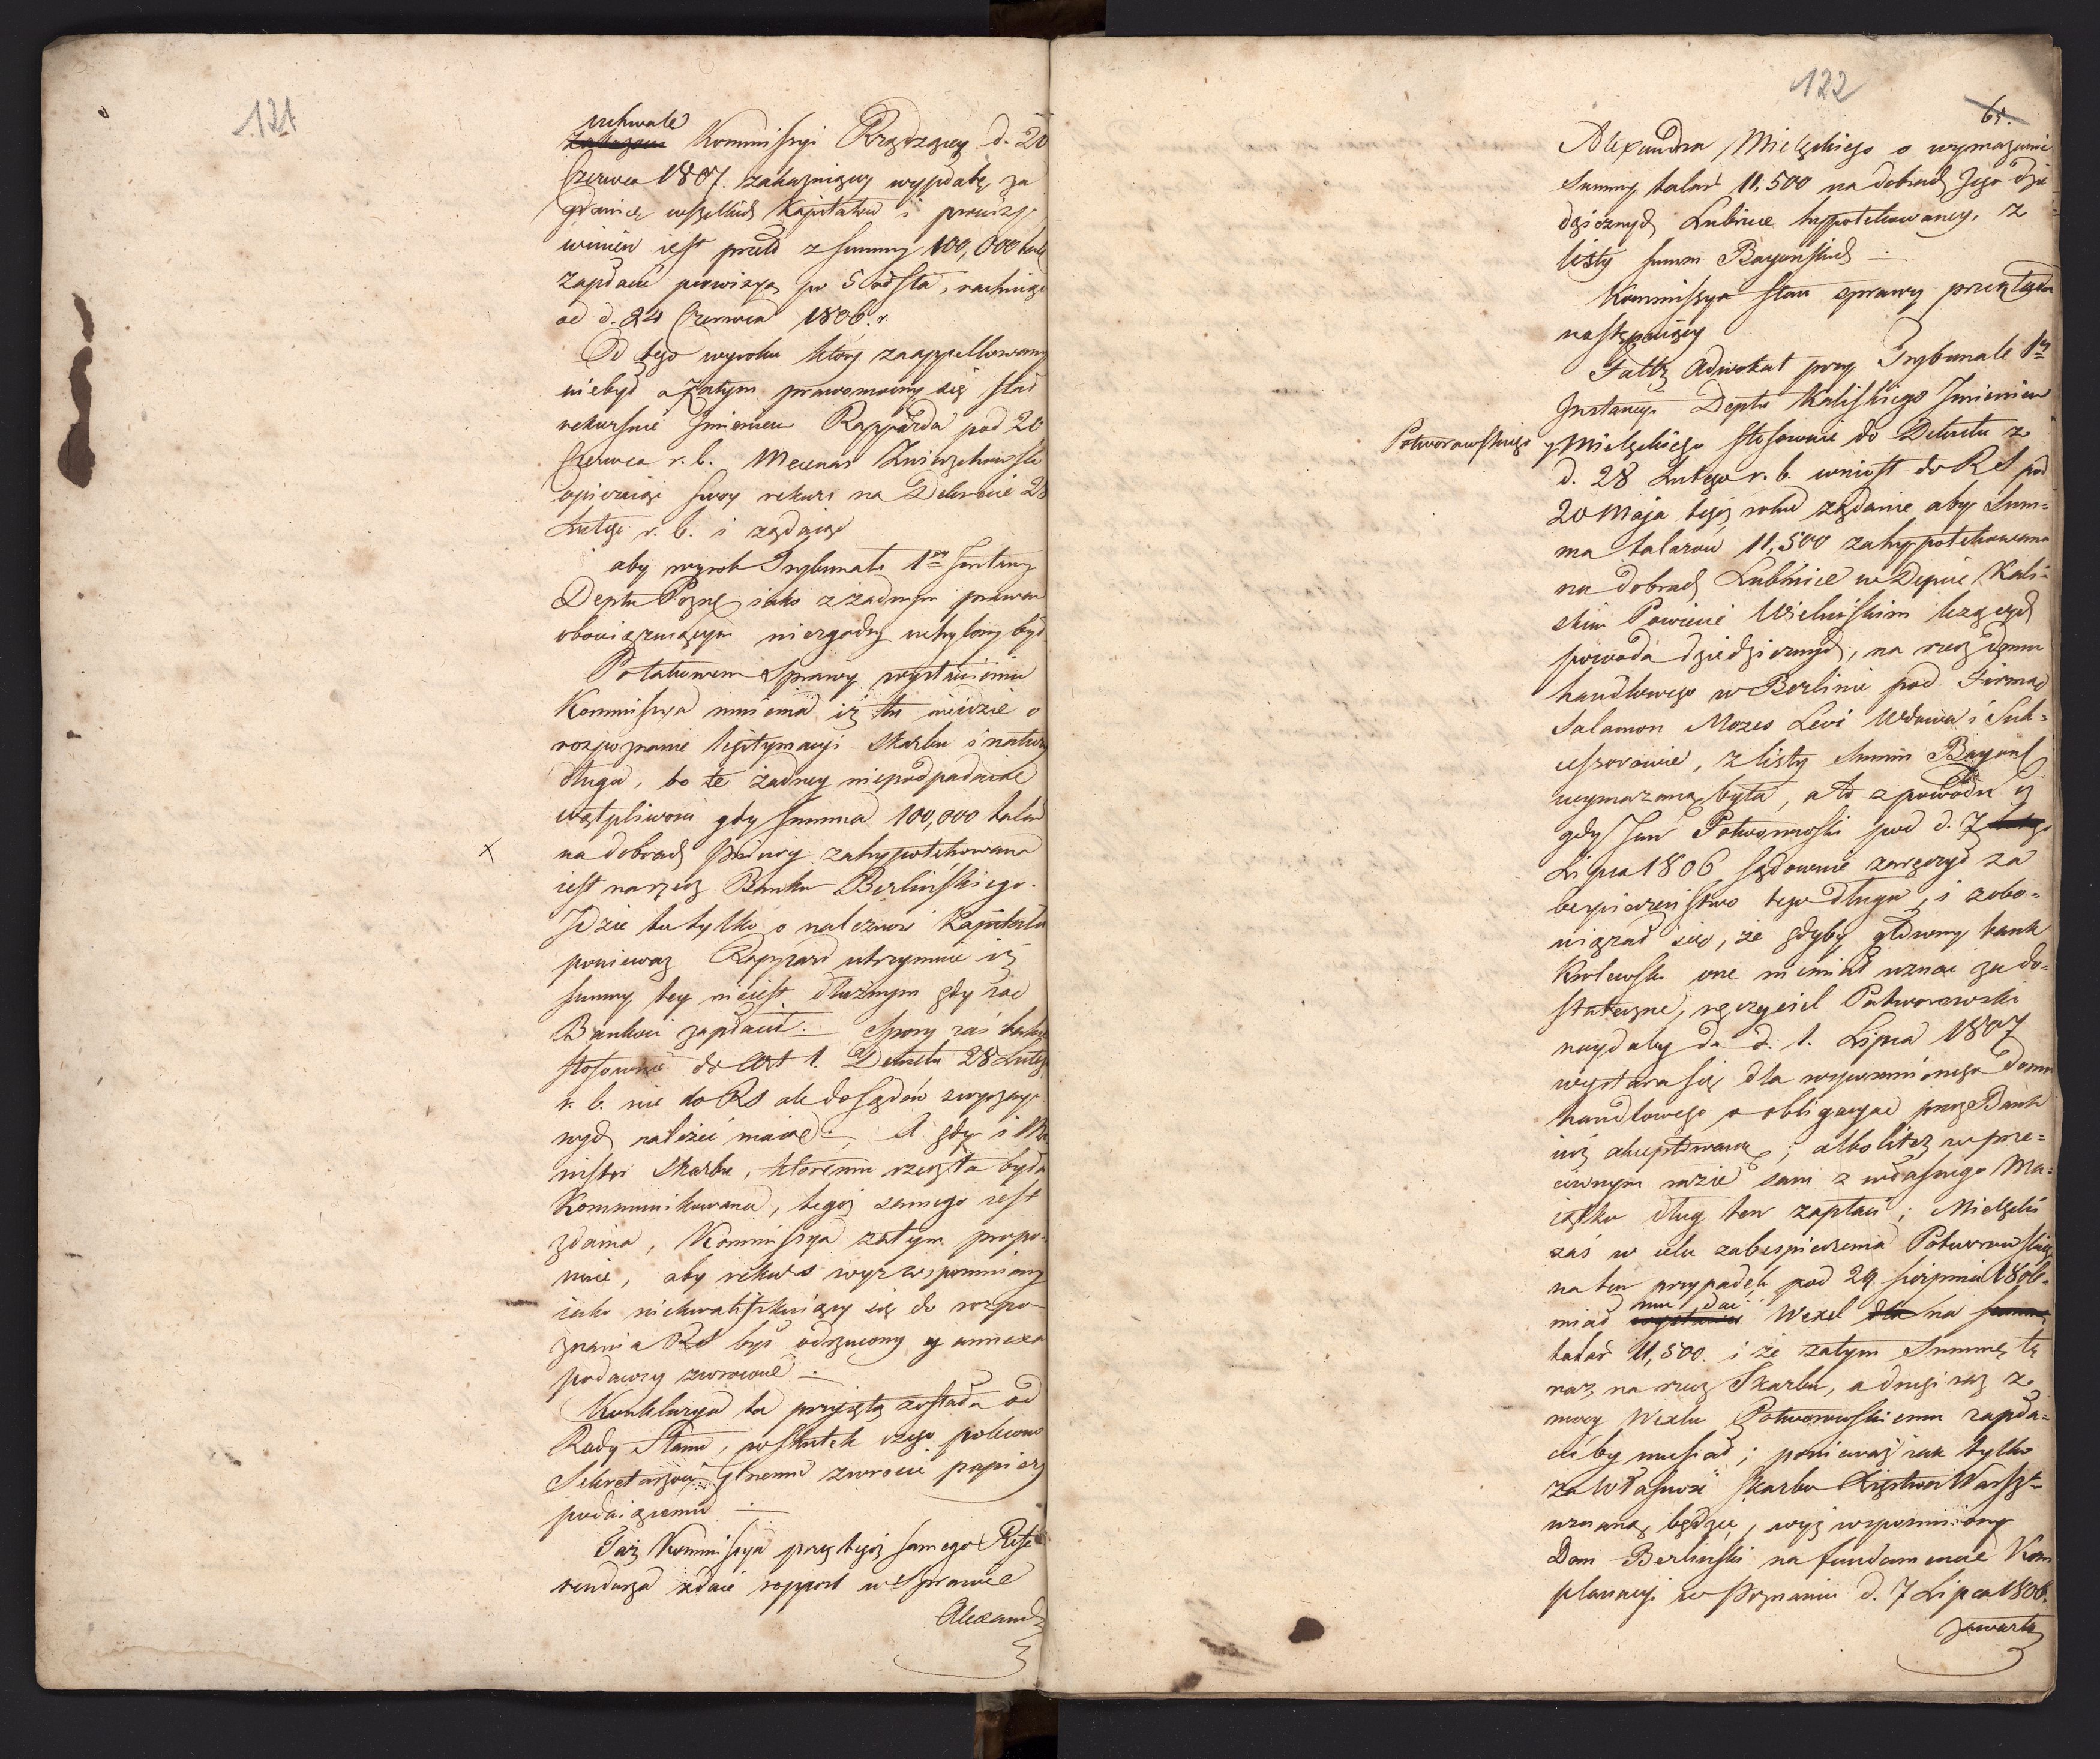 121
uchwale
zakazem Kommissyi Rządzącey d. 20
Czerwca 1807. zakazuiącey wypłatę za
granicę wszelkich Kapitałów i prowizyi
winien iest przeto z summy 100,000 tal
zapłacić prowizyą po 5 od sta, rachuiąc
od d. 24 Czerwca 1806. r.
Od tego wyroku który zaappellowany
niebył a zatym prawomocny się stał
rekursuie Imieniem Rapparda pod 20
Czerwca r. b. Mecenas
opieraiąc swoy rekurs na Dekrecie 28
Lutego r. b. i żądaiąc
aby wyrok Trybunału 1ey Instancyi
Deptu Pozn: iako z żadnym prawem
obowiązuiącym niezgodny uchylony był
Po takowem Sprawy wystawieniu
Kommissya mniema iż tu nieidzie o
rozpoznanie legitymacyi Skarbu i natury
długu, bo te żadney niepodpadaią
wątpliwości gdy summa 100,000 talar
x na dobrach zahypotekowana
iest na rzecz Banku Berlińskiego.
Idzie tu tylko o należność Kapitału
ponieważ Rappard utrzymuie iż
summy tey nieiest dłużnym gdy iąć
Bankowi zapłacił. Spory zaś takie
stosownie do Art 1. Dekretu 28 Lutego
r. b. nie do RS ale do Sądów zwyczay-
nych należeć maią. A gdy i Mi-
nister Skarbu, któremu rzecz ta była
Kommunikowana, tegoż samego iest
zdania, Kommissya zatym propo-
nuie, aby rekurs wyżwspomniany
iako niekwalifikuiący się do rozpo-
znania RS był odrzucony a annexa
podawcy zwrócone.
Konkluzya ta przyiętą została od
Rady Stanu, wskutek czego polecono
Sekretarzowi Głnemu zwrócić papiery
podaiącemu
Taż Kommissya przez tegoż samego Refe-
rendarza zdaie rapport w Sprawie
Alexandra
122
65.
Alexandra Mielęckiego o wymazanie
Summy talar 11,500 na dobrach Jego dzie-
dzicznych Lubnice hypotekowaney, z
listy summ Bayonskich
Kommissya stan sprawy przekłada
następuiący
Adwokat przy Trybunale 1ey
Instancyi Deptu Kaliskiego Imieniem
Potworowskiego y Mielęckiego stosownie do Dekretu z
d. 28 Lutego r. b. wniosł do RS pod
20 Maja tegoż roku żądanie aby Sum-
ma talarów 11,500 zahypotekowana
na dobrach Lubnice w Depcie Kali-
skim Powiecie Wieluńskim leżących
powoda dziedzicznych, na rzecz domu
handlowego w Berlinie pod Firmą
Salamon Mozes Levi Wdowa i Suk-
cessorowie, z listy Summ Bayons
wymazaną była, a to z powodu iż
gdy Jan Potworowski pod d. 7
Lipca 1806 sądownie zaręczył za
bezpieczeństwo tego długu, i zobo-
wiązał się, że gdyby główny bank
Krolewski one niemiał uznać za do-
stateczne, ręczyciel Potworowski
naydaley do d. 1. Lipca 1807
wystara się dla wspomnionego domu
handlowego o obligacyą przez Bank
iuż akceptowaną; albo też w prze-
ciwnym razie sam z własnego Ma-
iątku dług ten zapłaci; Mielęcki
zaś w celu zabezpieczenia Potworowskiego
na ten przypadek pod 29. Sierpnia 1806.
mu dać
miał wystawić Wexel dla na summę
talar 11,500. i że zatym Summę tę
raz na rzecz Skarbu, a drugi raz z
mocy Wexlu Potworowskiemu zapła-
ciby musiał; ponieważ iak tylko
za Własność Skarbu Xięstwa Warsz-
uznaną będzie, wyż wspomniony
Dom Berliński na fundamencie Kom
planacyi w Poznaniu d. 7 Lipca 1806.
zawartey